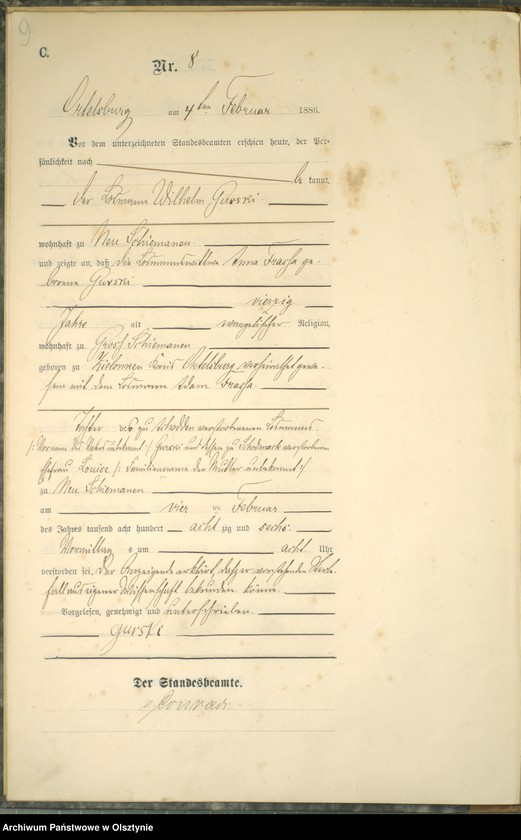 9
C.
Nr. 8
Ortelsburg am 4ten Februar 1886.
Vor dem unterzeichneten Standesbeamten erschien heute, der Per-
sönlichkeit nach
be kannt,
der Losmann Wilhelm Gurski
wohnhaft zu Neu Schiemanen
und zeigte an, daß die Losmannswittwe Anna Frassa ge-
borene Gurski
vierzig
Jahre alt evangelischer Religion,
wohnhaft zu Gross Schiemanen
geboren zu Kreis Ortelsburg verheirathet gewe-
sen mit dem Losmann Adam Frassa
Tochter des zu verstorbenen Losmannes
/: Vorname des Vaters unbekannt :/ Gurski und dessen zu verstorbene
Ehefrau Louise /: Familienname der Mutter unbekannt :/
zu Neu Schiemanen
am vier ten Februar
des Jahres tausend acht hundert acht zig und sechs
Vormittag s um acht Uhr
verstorben sei. Der Anzeigende erklärt, daß er vorstehenden Sterbe-
fall aus eigener Wissenschaft bekunden könne.
Vorgelesen, genehmigt und unterschrieben.
Gurski
Der Standesbeamte.
Conrad
Archiwum Państwowe w Olsztynie